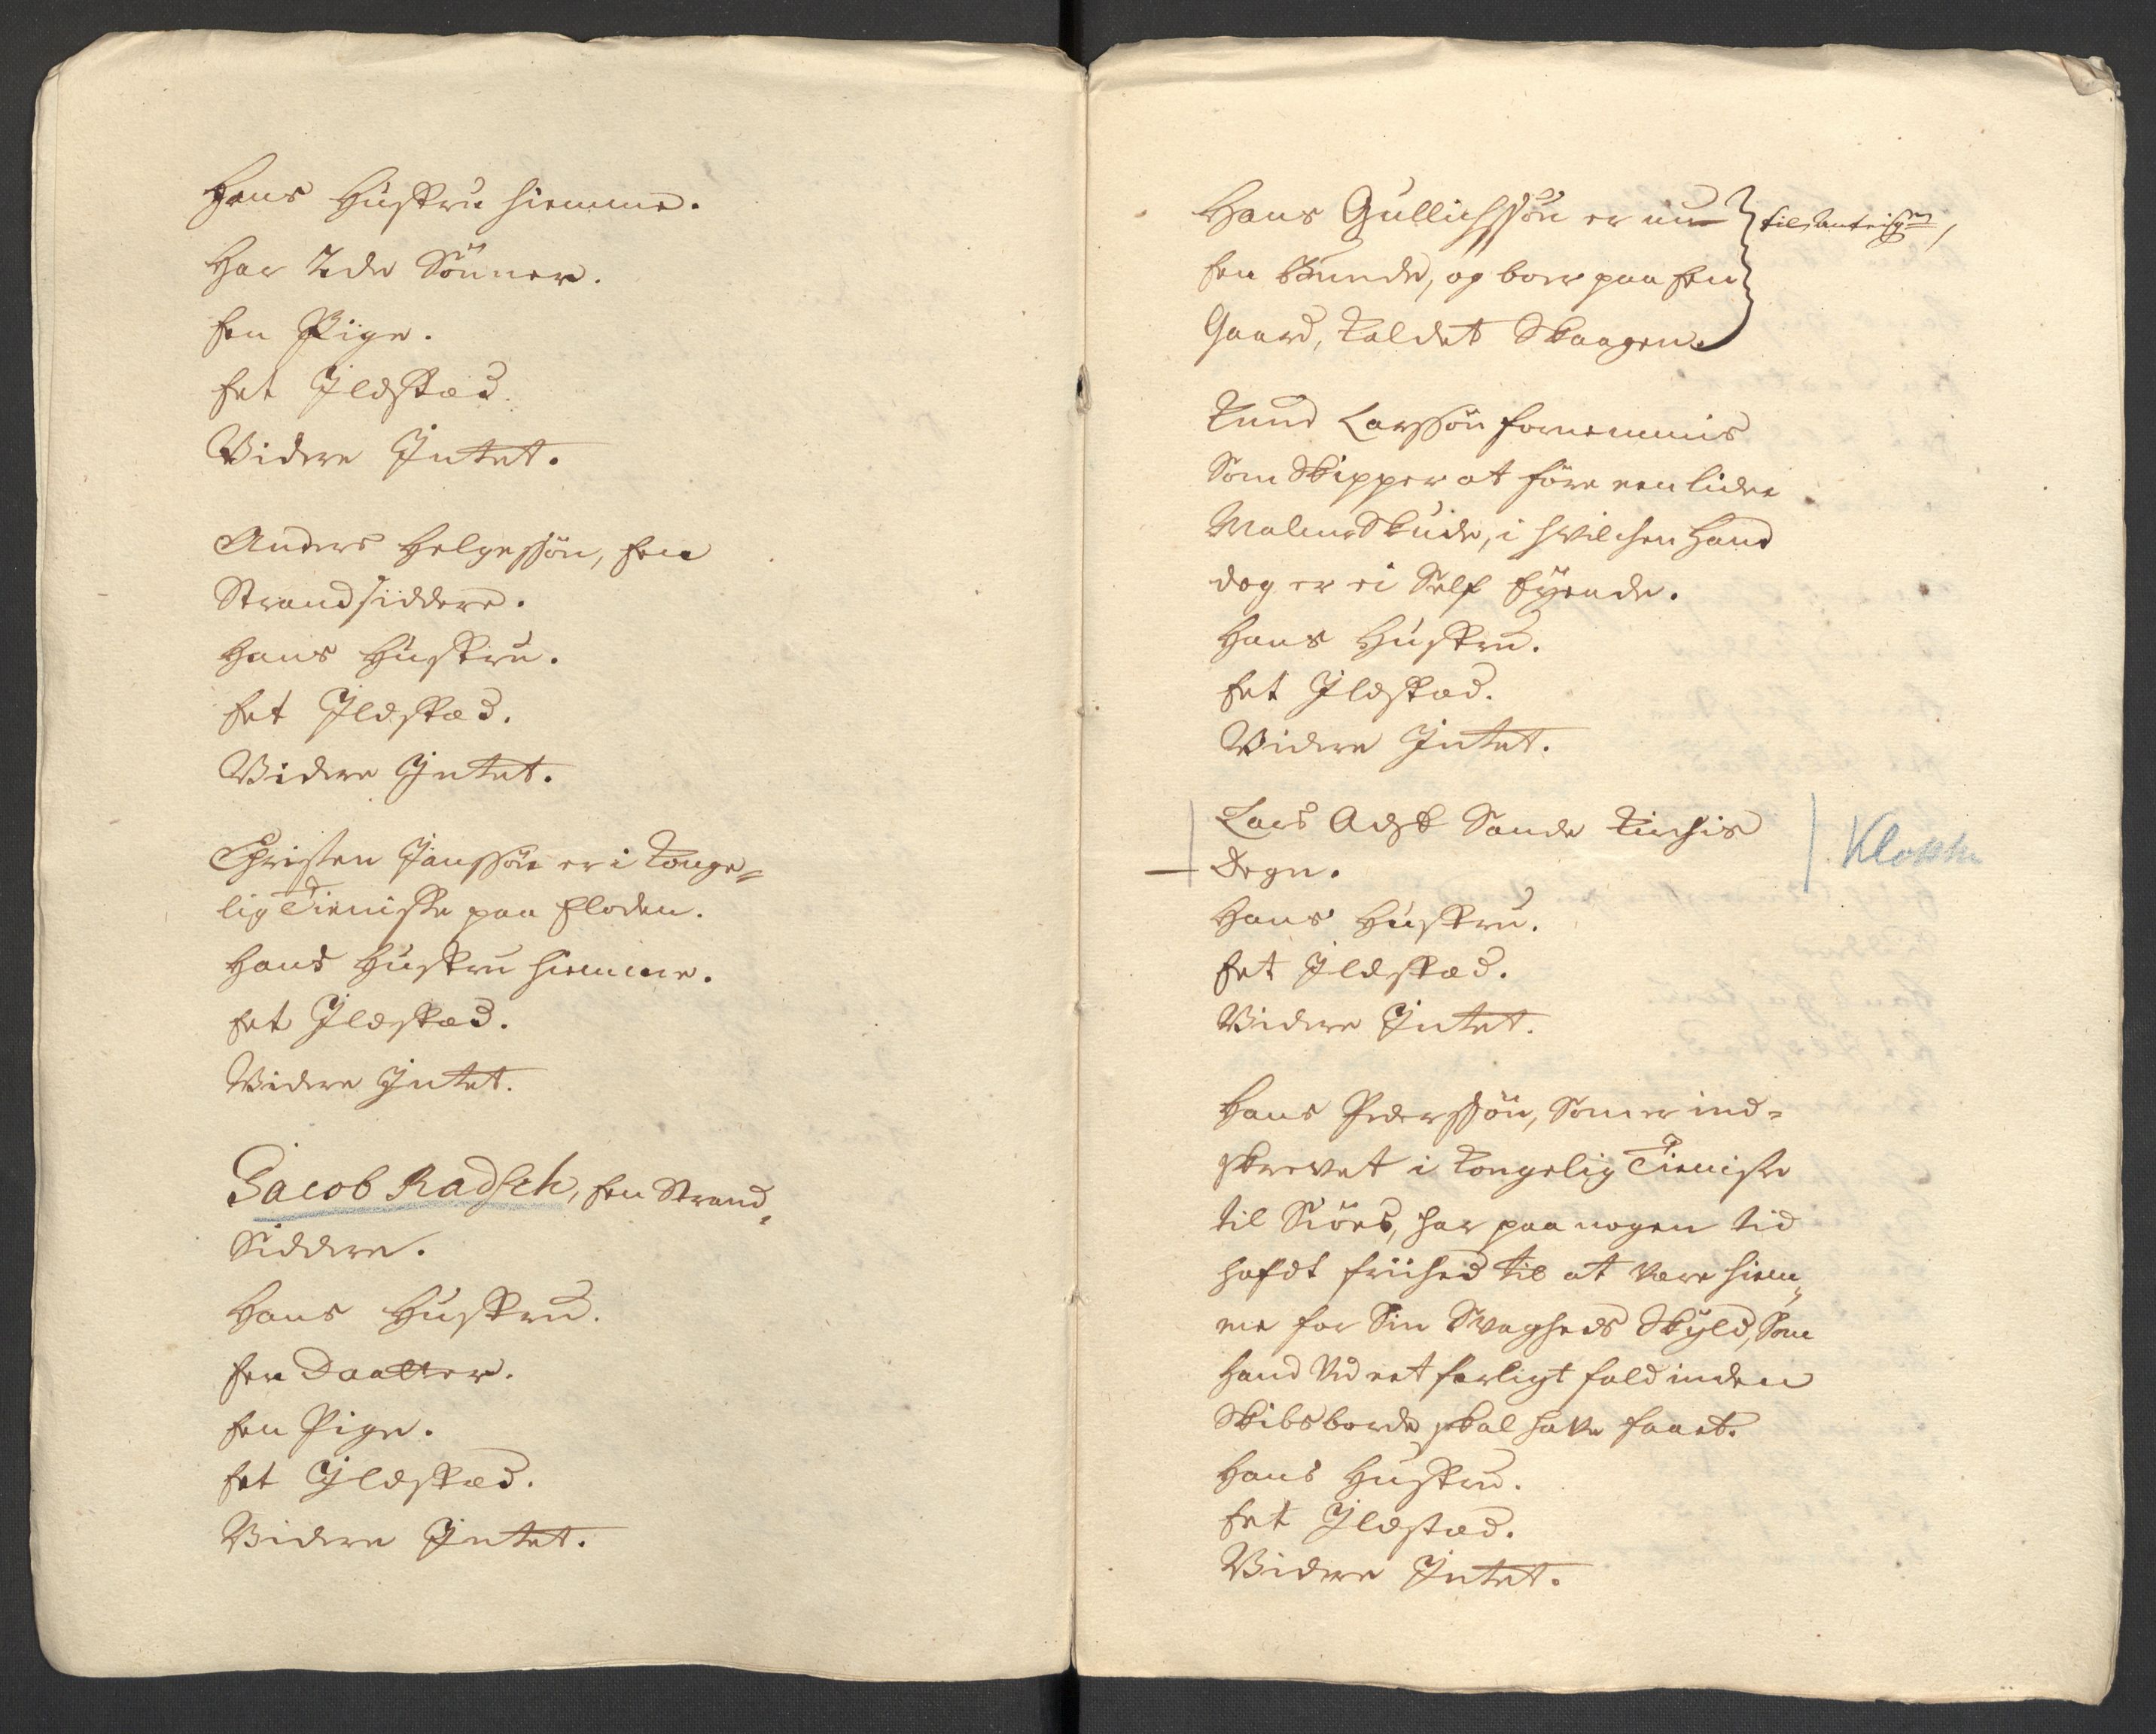 Hans Hustru hiemme.
Har 2de Sönner.
Een Pige.
Eet Ildstæd.
Videre Intet.
Anders Helgessön, Een
Strandsiddere.
Hans Hustru.
Eet Ildstæd.
Videre Intet.
Christen Janssön er i Konge=
lig Tieniste paa Floden.
Hans Hustru hiemme.
Eet Ildstæd.
Videre Intet.
Jacob Radsch, Een Strand=
Siddere.
Hans Hustru.
Een Daatter.
Een Pige.
Eet Ildstæd.
Videre Intet.
Hans Gullichssön er nu
Een Bunde, og boer paa Een
Gaard, Kaldet Skaagen.
til
Knud Larssön fornemmis
Som Skipper at före een liden
Malmskude, i hvilchen Hand
dog er ei Self Eyende.
Hans Hustru.
Eet Ildstæd.
Videre Intet.
Lars Sande Kirchis
Degn.
Klokker
Hans Hustru.
Eet Ildstæd.
Videre Intet.
Hans Pederssön, Som er ind=
skrevet i Kongelig Tieniste
til Siöes, har paa nogen tid
hafdt friihed til at være hiem=
me for Sin Svagheds Skyld, Som
Hand Ved eet farligt fald inden
Skibsborde skal have faaet.
Hans Hustru.
Eet Ildstæd.
Videre Intet.